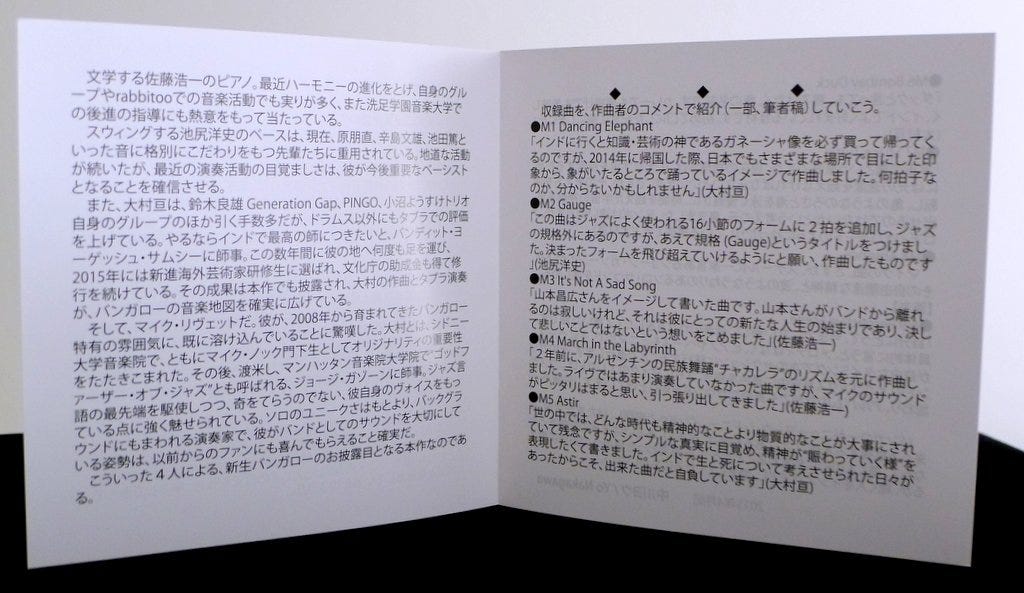 文学する佐藤浩一のピアノ。最近ハーモニーの進化をとげ、自身のグル
ープやrabbitooでの音楽活動でも実りが多く、また洗足学園音楽大学で
の後進の指導にも熱意をもって当たっている。
スウィングする池尻洋史のベースは、現在、原朋直、辛島文雄、池田篤と
いった音に格別にこだわりをもつ先輩たちに重用されている。地道な活動
が続いたが、最近の演奏活動の目覚ましさは、彼が今後重要なベーシスト
となることを確信させる。
また、大村亘は、鈴木良雄 Generation Gap、PINGO、小沼ようすけトリオ
自身のグループのほか引く手数多だが、ドラムス以外にもタブラでの評価
を上げている。やるならインドで最高の師につきたいと、パンディット・ヨ
ーゲッシュ・サムシーに師事。この数年間に彼の地へ何度も足を運び、
2015年には新進海外芸術家研修生に選ばれ、文化庁の助成金も得て修
行を続けている。その成果は本作でも披露され、大村の作曲とタブラ演奏
が、バンガローの音楽地図を確実に広げている。
そして、マイク・リヴェットだ。彼が、2008年から育まれてきたバンガロー
特有の雰囲気に、既に溶け込んでいることに驚嘆した。大村とは、シドニー
大学音楽院で、ともにマイク・ノック門下生としてオリジナリティの重要性
をたたきこまれた。その後、渡米し、マンハッタン音楽院大学院で“ゴッドフ
ァーザー・オブ・ジャズ”とも呼ばれる、ジョージ・ガゾーンに師事。ジャズ言
語の最先端を駆使しつつ、奇をてらうのでない、彼自身のヴォイスをもっ
ている点に強く魅せられている。ソロのユニークさはもとより、バックグラ
ウンドにもまわれる演奏家で、彼がバンドとしてのサウンドを大切にして
いる姿勢は、以前からのファンにも喜んでもらえること確実だ。
こういった4人による、新生バンガローのお披露目となる本作なのであ
る。
◆ ◆ ◆
収録曲を、作曲者のコメントで紹介(一部、筆者稿)していこう。
●M1 Dancing Elephant
「インドに行くと知識・芸術の神であるガネーシャ像を必ず買って帰ってく
るのですが、2014年に帰国した際、日本でもさまざまな場所で目にした印
象から、象がいたるところで踊っているイメージで作曲しました。何拍子な
のか、分からないかもしれません」(大村亘)
●M2 Gauge
「この曲はジャズによく使われる16小節のフォームに2拍を追加し、ジャズ
の規格外にあるのですが、あえて規格(Gauge)というタイトルをつけまし
た。決まったフォームを飛び超えていけるようにと願い、作曲したものです
」(池尻洋史)
●M3 It's Not A Sad Song
「山本昌広さんをイメージして書いた曲です。山本さんがバンドから離れ
るのは寂しいけれど、それは彼にとっての新たな人生の始まりであり、決し
て悲しいことではないという想いをこめました。」(佐藤浩一)
●M4 March in the Labyrinth
「2年前に、アルゼンチンの民族舞踊“チャカレラ”のリズムを元に作曲し
ました。ライヴではあまり演奏していなかった曲ですが、マイクのサウンド
がピッタリはまると思い、引っ張り出してきました」(佐藤浩一)
●M5 Astir
「世の中では、どんな時代も精神的なことより物質的なことが大事にされ
ていて残念ですが、シンプルな真実に目覚め、精神が“賑わっていく様”を
表現したくて書きました。インドで生と死について考えさせられた日々が
あったからこそ、出来た曲だと自負しています」(大村亘)